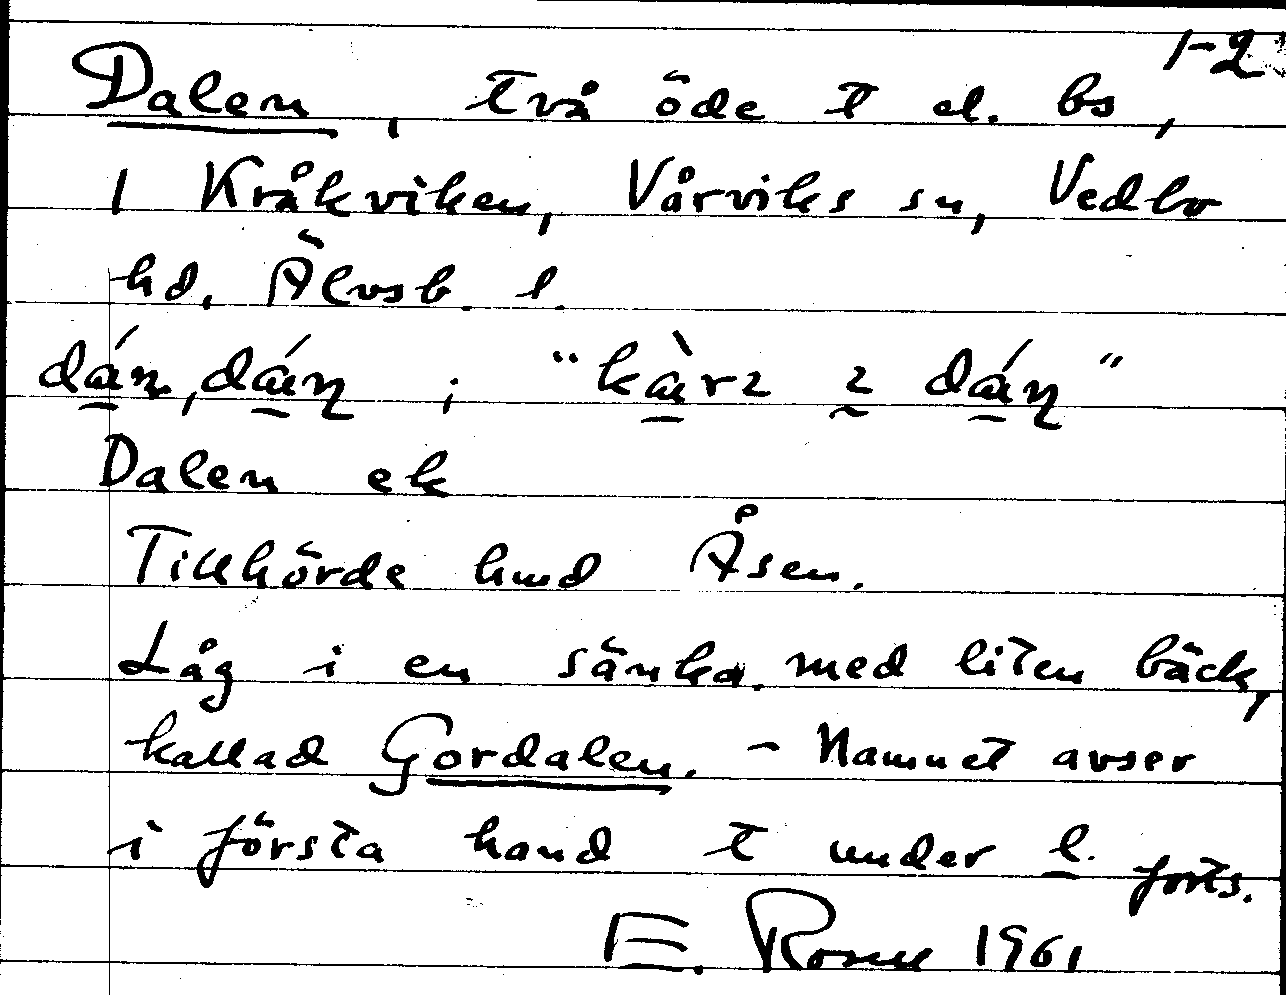 1-2
Dalen, två öde t el. bs,
1 Kråkviken, Vårviks sn, Vedbo
hd. Älvsb. l.
dán, dáɳ ; "kàrɩ ɩ dáɳ"
Dalen ek
Tillhörde hmd Åsen.
Låg i en sänka med liten bäck,
kallad Gordalen. - Namnet avser
i första hand t under l. forts.
E. 1961